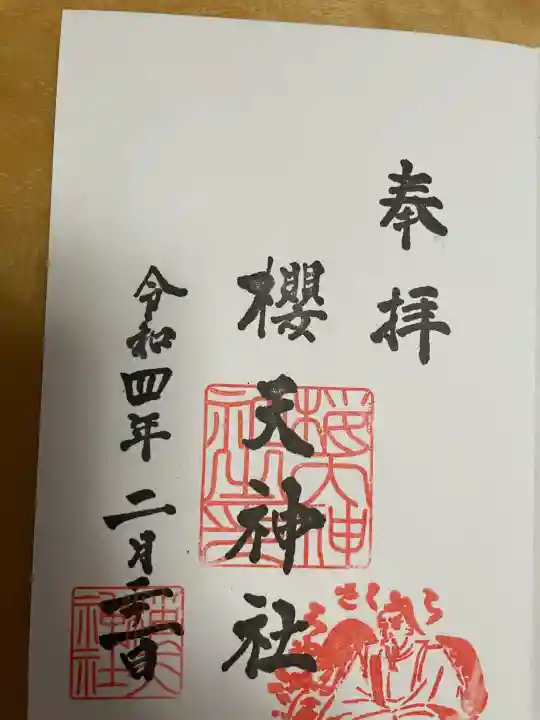 奉拝
櫻天神社
令和四年二月二十二日
櫻天神社印
さくら